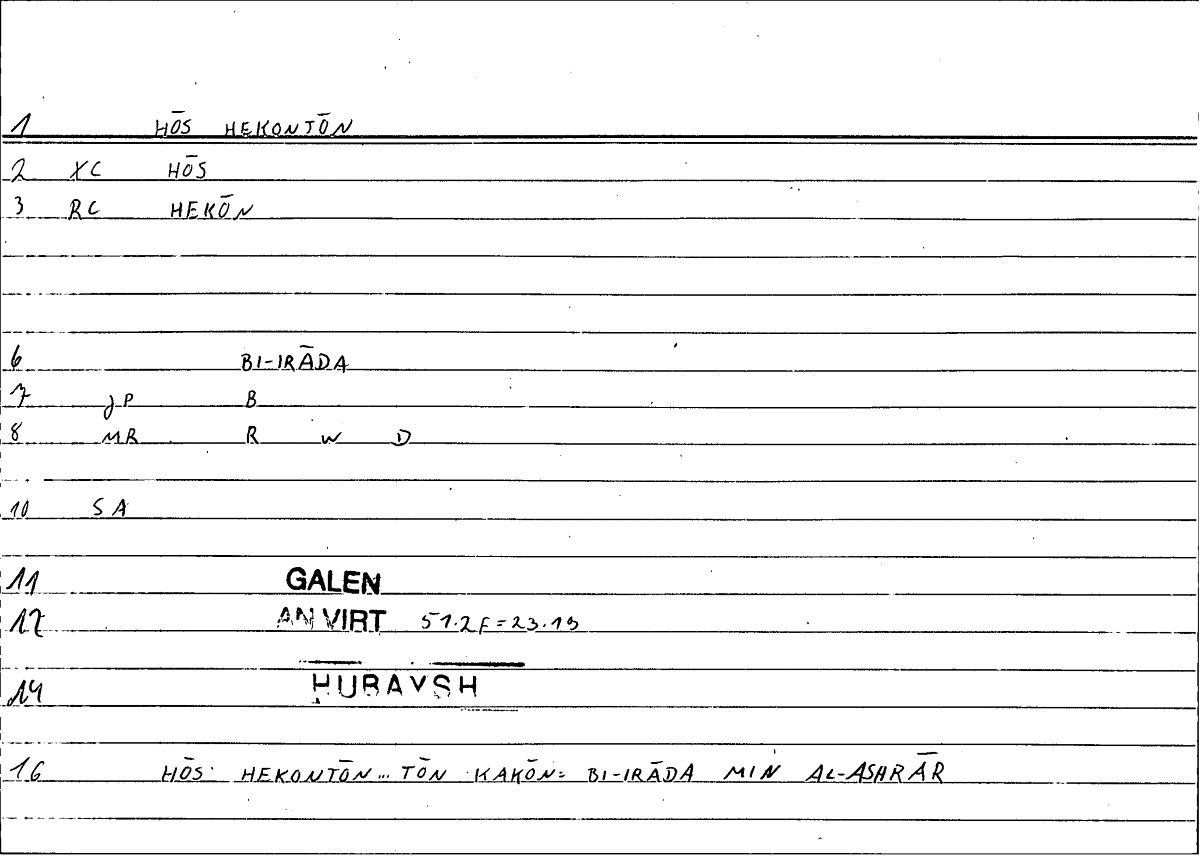 1 HŌS HEKONTŌN
2 XC HŌS
3 RC HEKŌN
6 BI-IRĀDA
7 JP B
8 MR R W D
10 SA
11 GALEN
12 AN VIRT 51.2F=23.19
14 HUBAYSH
16 HŌS HEKONTŌN... TŌN KAKŌN= BI-IRĀDA MIN AL-ASHRĀR